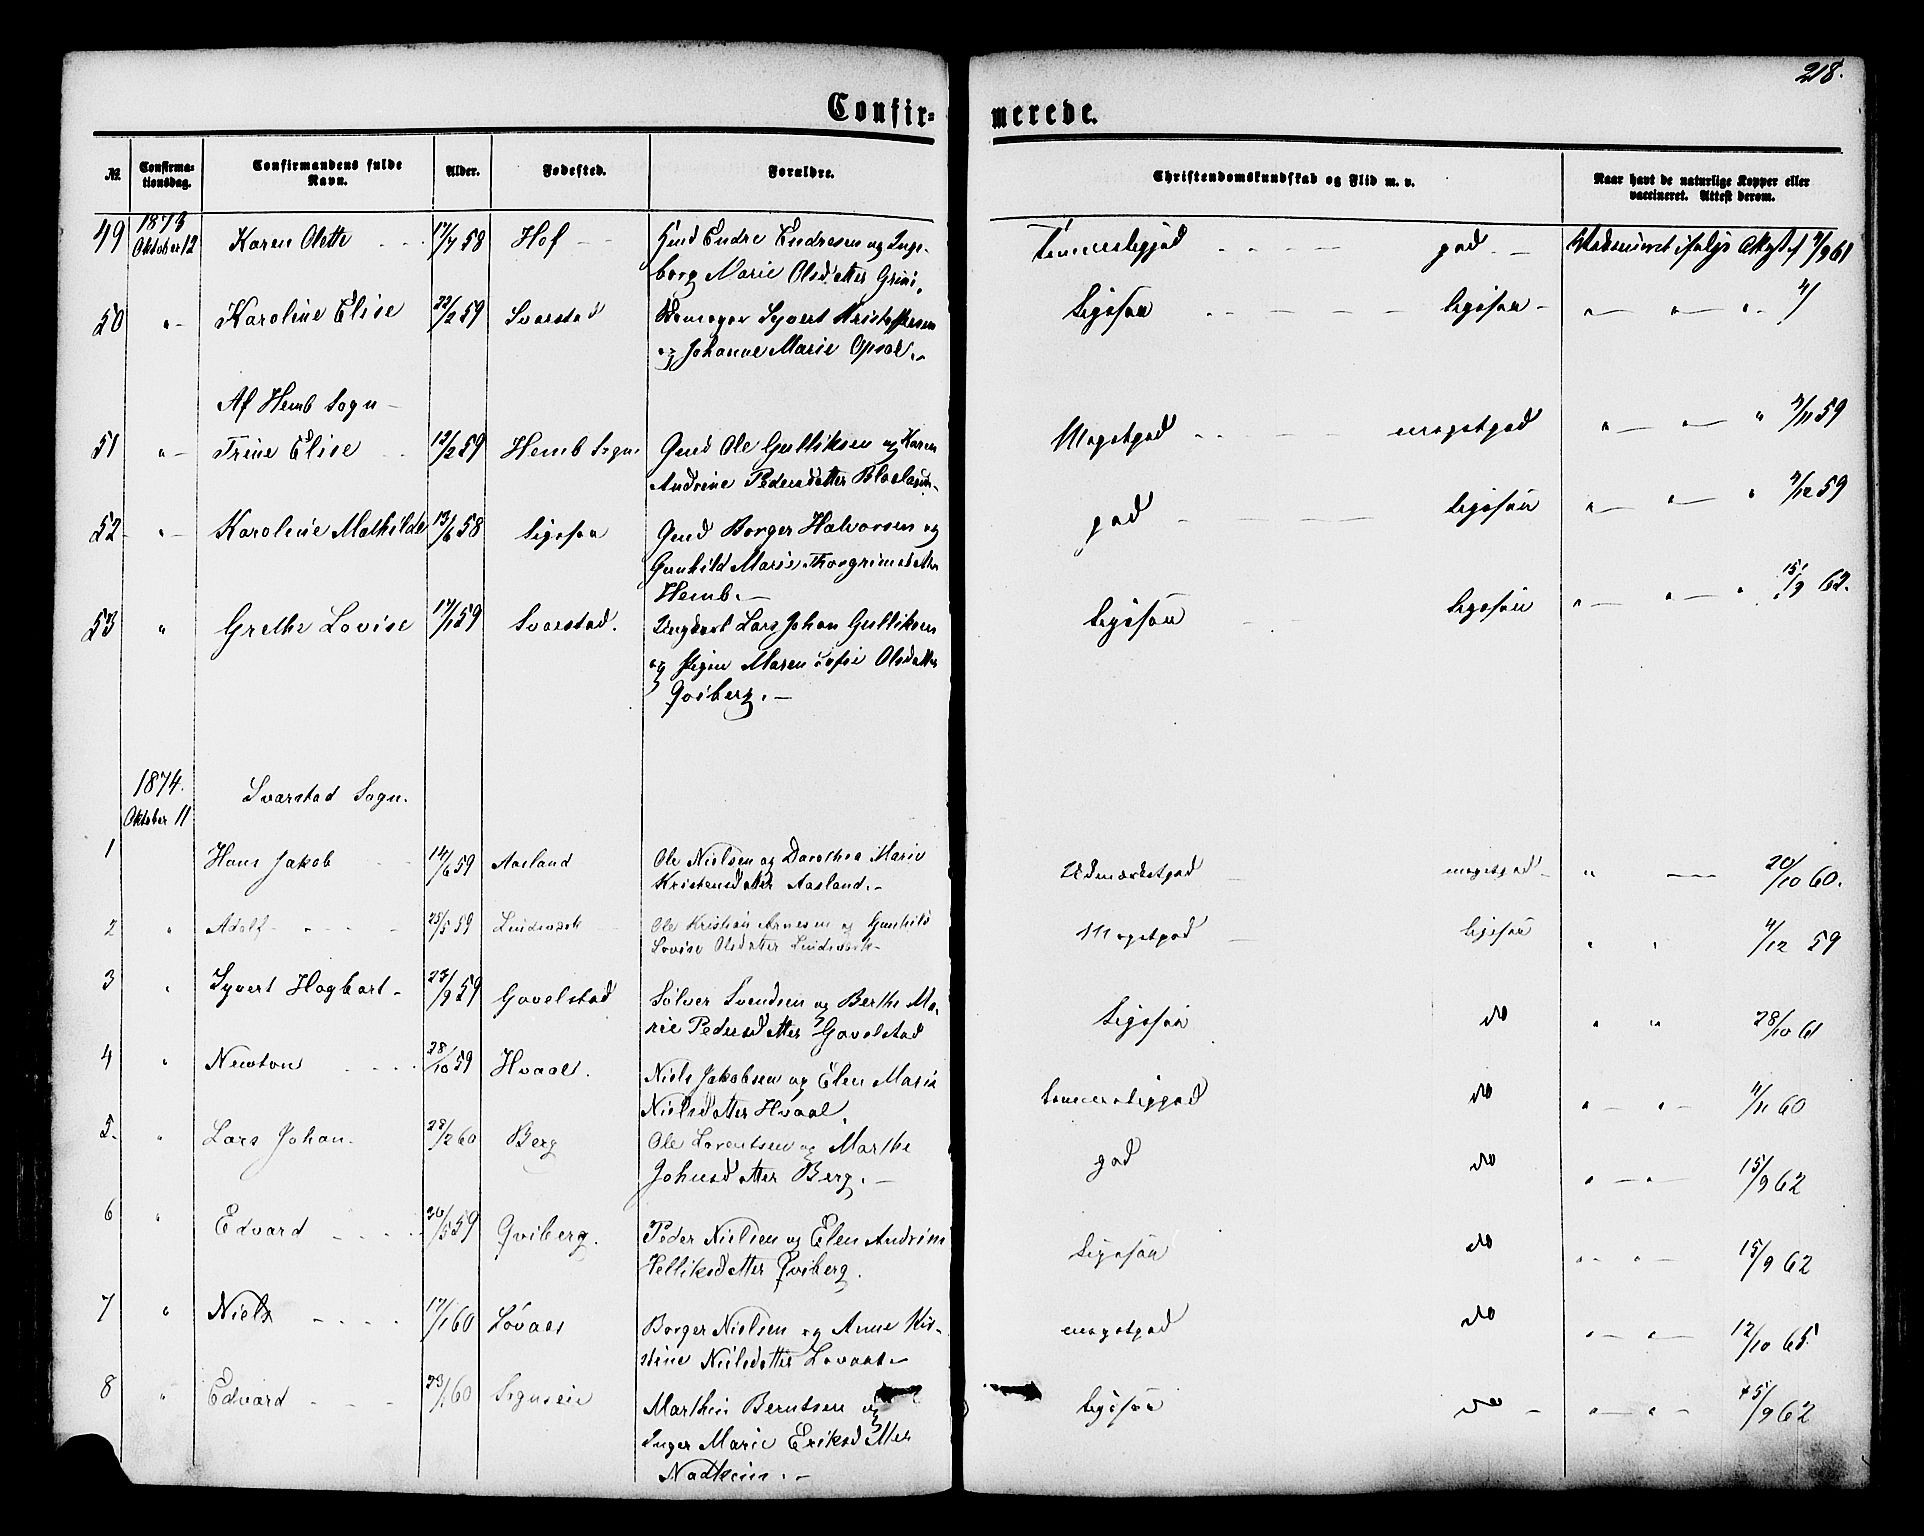 218.
Confir-
merede.
No.
Confirma-
tionsdag.
Confirmandens fulde
Navn.
Alder.
Fødested.
Forældre.
Christendomskundskab og Flid m. v.
Naar havt de naturlige Kopper eller
vaccineret. Attest derom.
49 1873 Oktober 12 Karen Olette 17/7 58 Hof Gmd Endre Endresen og Inge-
borg Marie Olsdatter Grini. god
50 " Karoline Elise 22/2 59 Svarstad Syvert Kristoffersen
og Johanne Marie Opsal. Ligesaa ligesaa
Af Hemb Sogn
51 " Trine Elise 12/2 59 Hemb Sogn Gmd Ole Gulliksen og Karen
Andrine Pedersdatter Meget god meget god " " " 4/11 59
52 " Karoline Mathilde 13/6 58 Ligesaa Gmd Borger Halvorsen og
Gunhild Marie Thorgrimsdatter
Hemb. god ligesaa " " " 4/12 59
53 " Grethe Lovise 17/1 59 Svarstad. Ungkarl Lars Johan Gulliksen
og Pigen Maren Sofie Olsdatter
Qviberg. Ligesaa ligesaa " " " 15/9 62.
1874.
Oktober 11
Svarstad Sogn.
1 Hans Jakob 14/6 59 Aasland Ole Nielsen og Dorothea Marie
Kristensdatter Aasland. Udmærket god meget god " 20/10 60.
2 " Adolf 25/5 59 Ole Kristian Arnesen og Gunhild
Lovise Olsdatter Meget god ligesaa " " 4/12 59
3 " Syvert Hagbart 23/9 59 Gavelstad Sølver Svendsen og Berthe Ma-
rie Pedersdatter Gavelstad Ligesaa do " " 28/10 61
4 " Newton 28/10 59 Hvaal. Niels Jakobsen og Elen Marie
Nielsdatter Hvaal. Temmelig god do " " 4/11 60
5. " Lars Johan. 28/2 60 Berg Ole Lorentsen og Marthe
Johnsdatter Berg. god do " " 15/9 62
6 " Edvard 20/5 59 Qviberg. Peder Nielsen og Elen Andrine
Qviberg. Ligesaa do " " 15/9 62
7 " Niels 17/1 60 Lövaas Borger Nielsen og Anne Kir-
stine Nielsdatter Lovaas meget god do " " 12/10 65
8 " Edvard 23/1 60 Marthin Berntsen og
Inger Marie Eriksdatter
Ligesaa do " " 15/9 62